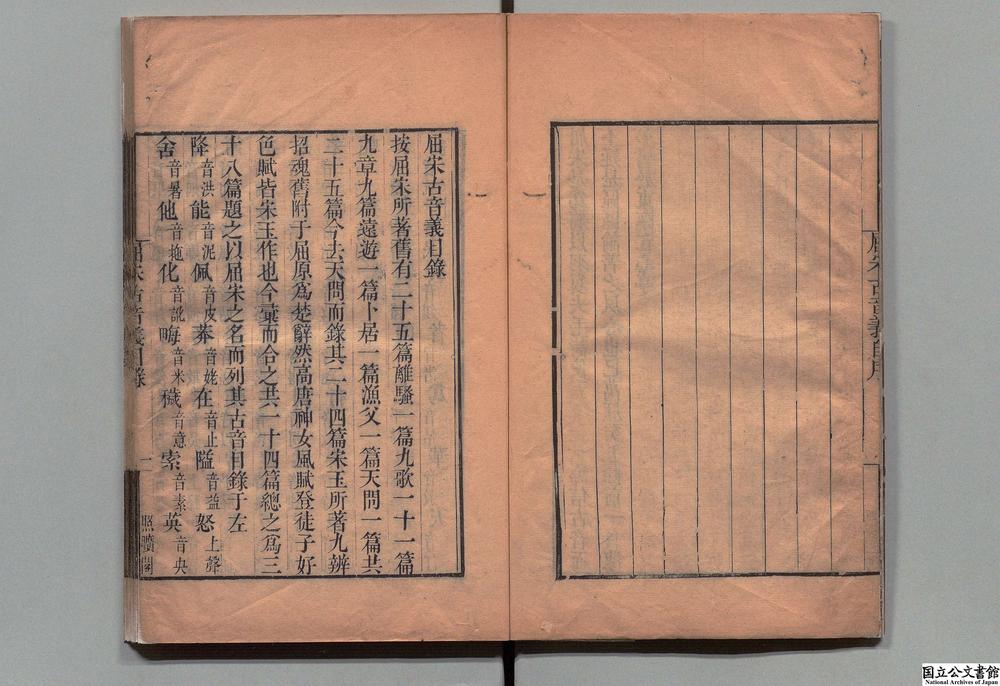 屈宋古音義目錄
按屈宋所著舊有二十五篇離騷一篇九歌一十一篇
九章九篇遠遊一篇卜居一篇漁父一篇天問一篇共
二十五篇今去天問而錄其二十四篇宋玉所著九辨
招魂舊附于屈原爲楚辭然高唐神女風賦登徒子好
色賦皆宋玉作也今彙而合之共一十四篇總之爲三
十八篇題之以屈宋之名而列其古音目錄于左
降音洪能音泥佩音皮莽音姥在音止隘音益怒上聲
舍音暑他音拖化音訛晦音米穢音意索音素英音央
屈宋古音義目錄 一
屈宋古音義
国立公文書館
National Archives of Japan